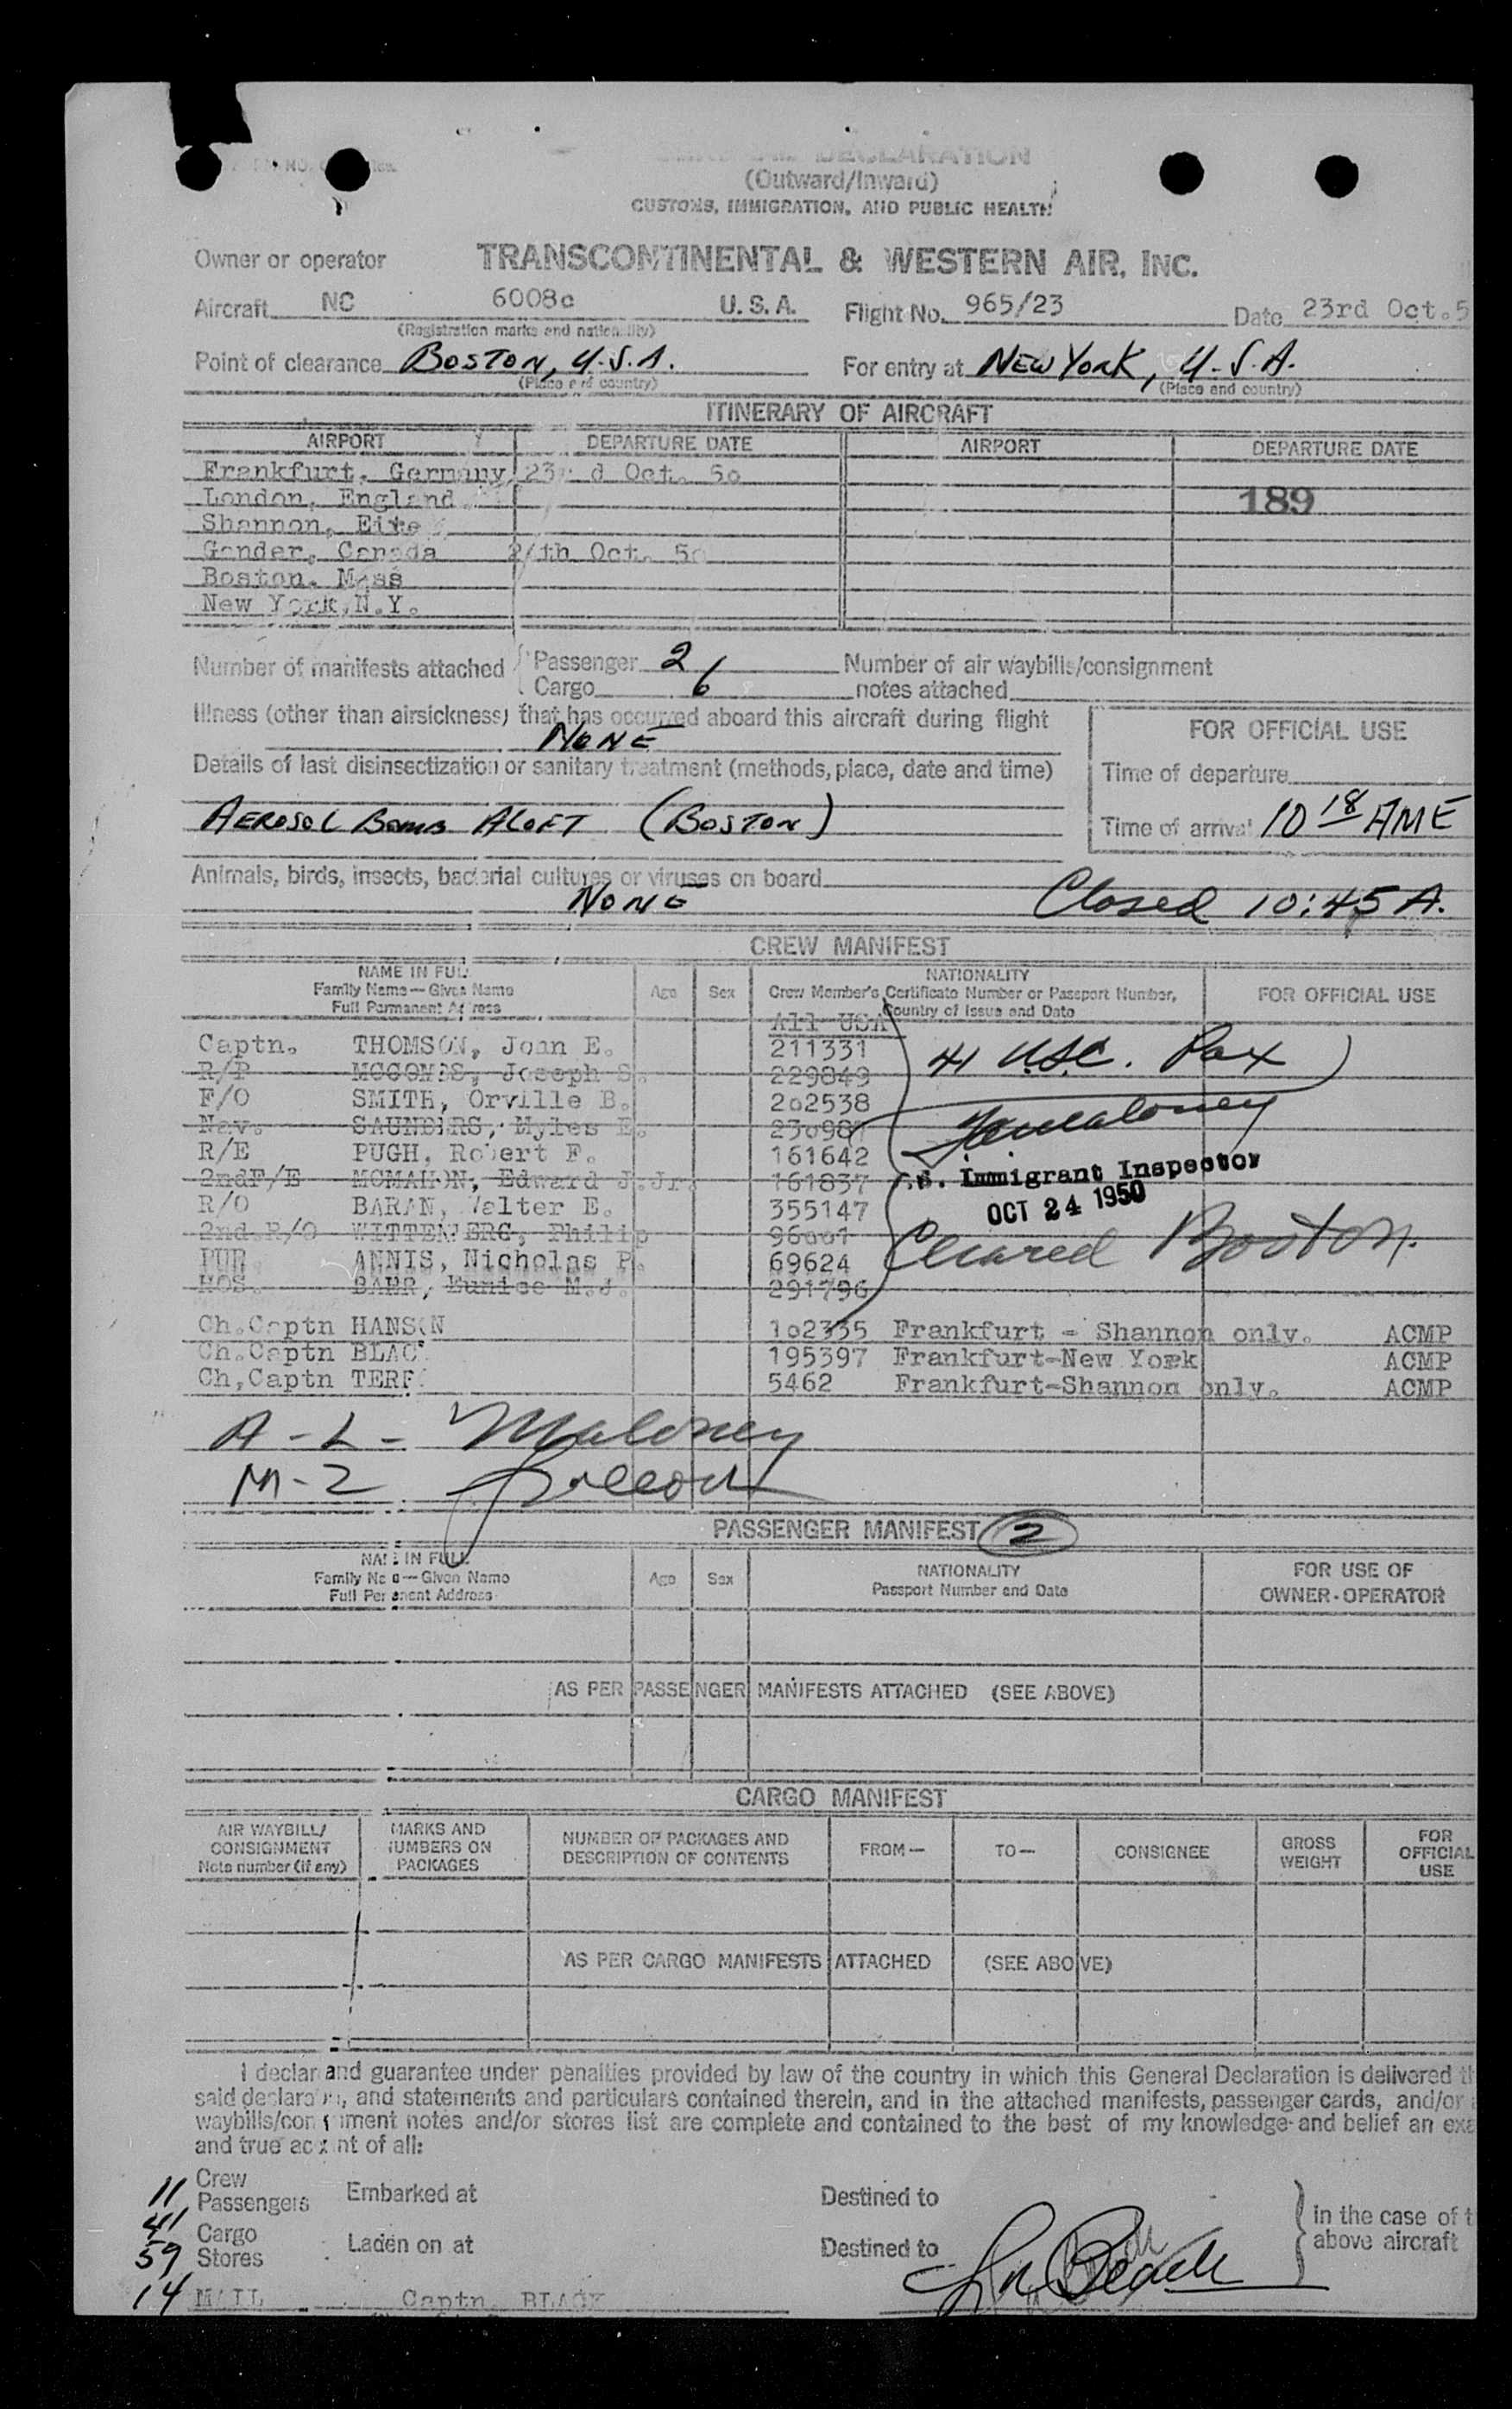 DECLARATION
(Outward/Inward)
CUSTOMS, IMMIGRATION, AND PUBLIC HEALTH
Owner or operator TRANSCONTINENTAL & WESTERN AIR, INC.
Aircraft NC 6008c U. S. A. Flight No. 965/23 Date 23rd Oct.5
(Registration marks and nationality)
Point of clearance BOSTON, U.S.A. For entry at NEW YORK, U.S.A.
(Place and country) (Place and country)
ITINERARY OF AIRCRAFT
AIRPORT DEPARTURE DATE AIRPORT DEPARTURE DATE
Frankfurt, Germany 23rd Oct. 5o
London, England 189
Shannon, Eire
Gander, Canada 24th Oct. 5o
Boston. Mass
New York,N.Y.
Number of manifests attached Passenger 2 Number of air waybills/consignment
Cargo 6 notes attached
Illness (other than airsickness) that has occurred aboard this aircraft during flight
NONE
FOR OFFICIAL USE
Details of last disinsectization or sanitary treatment (methods, place, date and time)
Time of departure
AEROSOL BOMB ALOFT (BOSTON)
Time of arrival 10 18 AME
Animals, birds, insects, bacterial cultures or viruses on board
NONE Closed 10:45 A.
CREW MANIFEST
NAME IN FULL NATIONALITY
Family Name—Given Name Age Sex Crew Member's Certificate Number or Passport Number, FOR OFFICIAL USE
Full Permanent Address Country of Issue and Date
All USA
Captn. THOMSON, John E. 211331 41 U.S.C. Pax
R/P MCCOMBS, Joseph S. 229849
F/O SMITH, Orville B. 2o2538
Nav. SAUNDERS, Myles E. 23o98
R/E PUGH, Robert F. 161642
2ndF/E MCMAHON, Edward J.Jr. 161837 U.S. Immigrant Inspector
R/O BARAN, Walter E. 355147 OCT 24 1950
2nd.R/O WITTENBERG, Philip 96oo1 Cleared Boston.
PUR ANNIS, Nicholas P. 69624
HOS. BAER, Eunice M.J. 291796
Ch.Captn HANSON 1o2335 Frankfurt - Shannon only. ACMP
Ch.Captn BLACK 195397 Frankfurt-New York ACMP
Ch,Captn TERF 5462 Frankfurt-Shannon only. ACMP
A - L - Maloney
M-2
PASSENGER MANIFEST 2
NAME IN FULL NATIONALITY FOR USE OF
Family Name—Given Name Age Sex Passport Number and Date OWNER-OPERATOR
Full Permanent Address
AS PER PASSENGER MANIFESTS ATTACHED (SEE ABOVE)
CARGO MANIFEST
AIR WAYBILL/ MARKS AND NUMBER OF PACKAGES AND FROM— TO— CONSIGNEE GROSS FOR
CONSIGNMENT NUMBERS ON DESCRIPTION OF CONTENTS WEIGHT OFFICIAL
Note number (if any) PACKAGES USE
AS PER CARGO MANIFESTS ATTACHED (SEE ABOVE)
I declare and guarantee under penalties provided by law of the country in which this General Declaration is delivered th
said declaration, and statements and particulars contained therein, and in the attached manifests, passenger cards, and/or
waybills/consignment notes and/or stores list are complete and contained to the best of my knowledge and belief an exa
and true account of all:
11 Crew
41 Passengers Embarked at Destined to In the case of t
59 Cargo
Stores Laden on at Destined to above aircraft
14 MAIL Captn. BLACK